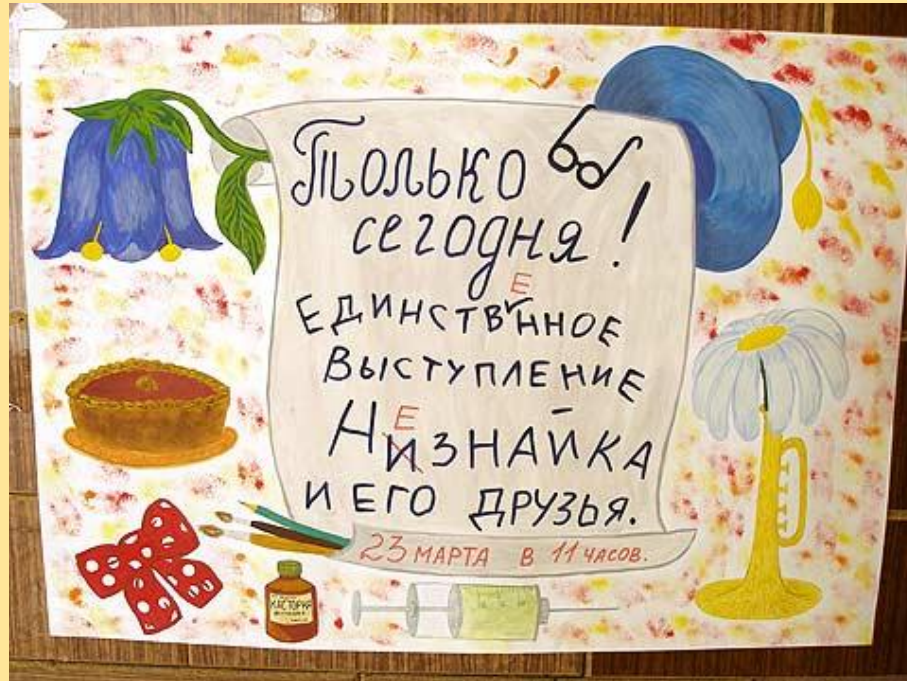 Только
сегодня!
ЕДИНСТВЕННОЕ
ВЫСТУПЛЕНИЕ
НЕЗНАЙКА
И ЕГО ДРУЗЬЯ.
23 МАРТА В 11 ЧАСОВ.
КАСТОРКА